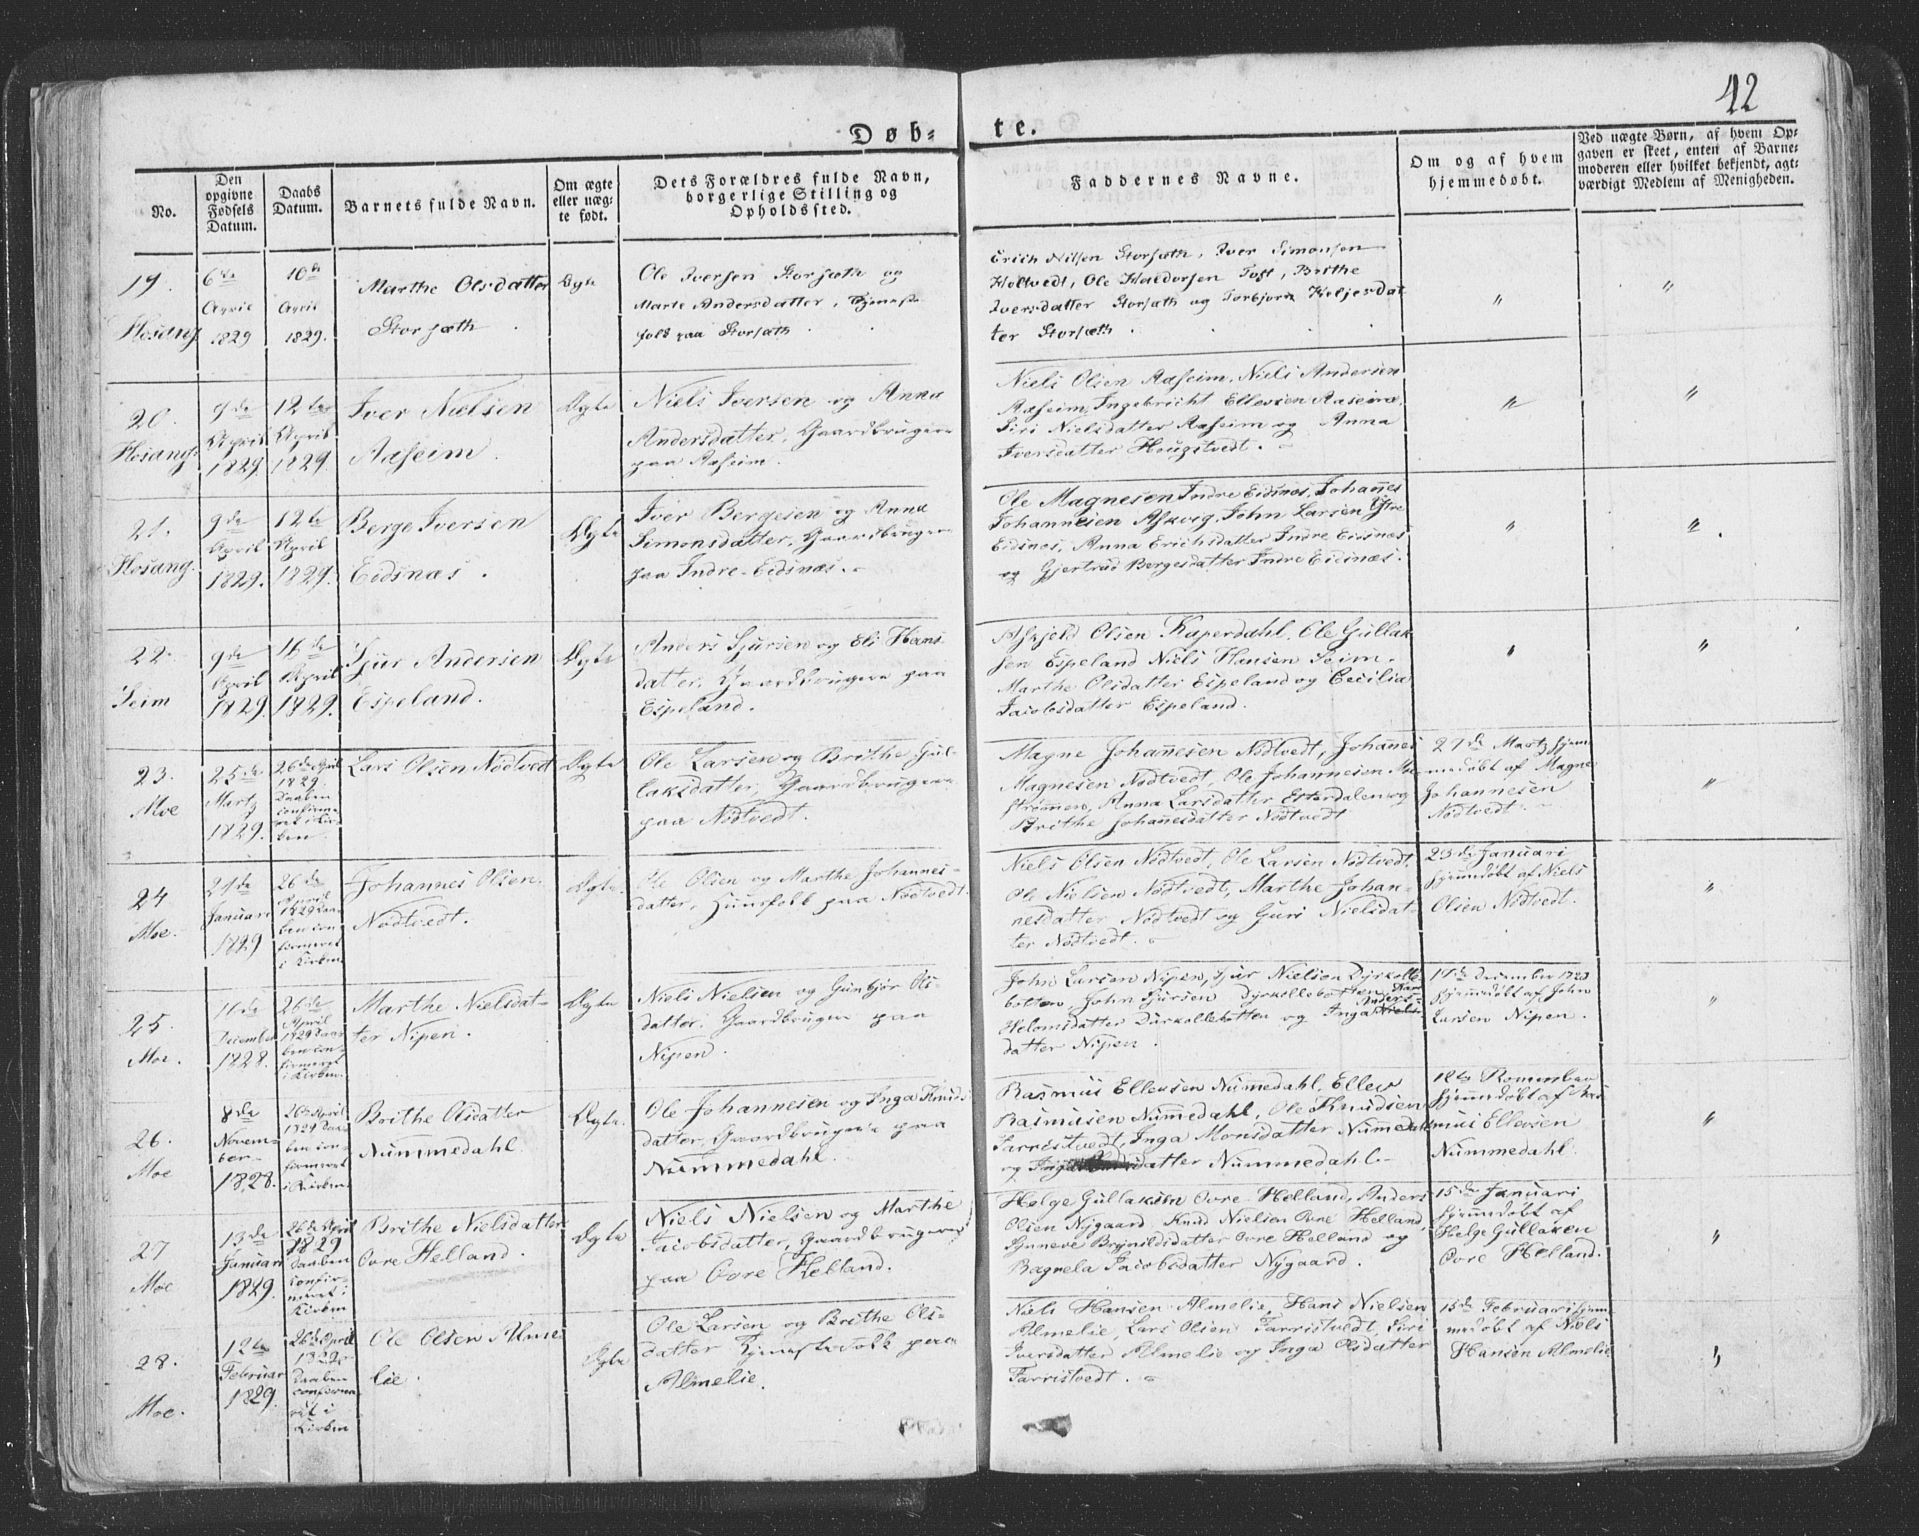 42
Døb-te.
No.
Den opgivne Fødsels Datum.
Daabs Datum.
Barnets fulde Navn.
Om ægte eller uægte født.
Dets Forældres fulde Navn, borgerlige Stilling og Opholdssted.
Faddernes Navne.
Om og af hvem hjemmedøbt.
Ved uægte Børn, af hvem Opgaven er skeet, enten af Barnemoderen eller hvilket bekjendt, agtværdigt Medlem af Menigheden.
19.
Hosang
6te
April
1829
10de
April
1829.
Marthe Olsdatter
Storsæth
Ægte
Ole Iversen Storsæth og
Marte Andersdatter, Tjeneste
folk paa Storsæth
Erich Nilsen Storsæth, Iver Simonsen
Holtvedt, Ole Haldorsen Toft, Brithe
Iversdatter Storsæth og Torbjorn Keljesdat
ter Storsæth
"
"
20.
Hosang
9de
April
1829.
12te
April
1829.
Iver Nielsen
Aaseim.
Ægte
Niels Iversen og Anna
Andersdatter, Gaardbrugere
paa Aaseim.
Niels Olsen Aaseim, Niels Andersen
Aaseim, Ingebricht Ellevsen Aaseim,
Siri Nielsdatter Aaseim og Anna
Iversdatter Hougstvedt.
"
"
21.
Hosang.
9de
April
1829.
12te
April
1829.
Berge Iversen
Eidsnæs.
Ægte
Iver Bergesen og Anna
Simonsdatter, Gaardbrugere
paa Indre-Eidsnæs.
Ole Magnesen Indre Eidsnæs, Johannes
Johannesen Askvig, John Larsen Ÿtre
Eidsnes, Anna Erichsdatter Indre Eidsnes
og Gjertrud Bergesdatter Indre Eidsnæs.
"
"
22.
Seim
9de
April
1829.
16de
April
1829.
Sjur Andersen
Espeland.
Ægte
Anders Sjursen og Eli Hans
datter, Gaardbrugere paa
Espeland.
Askjeld Olsen Kaperdahl, Ole Gullak
sen Espeland Niels Hansen Seim.
Marthe Olsdatter Espeland og Cecilia
Jacobsdatter Espeland.
"
"
23.
Moe
25de
Martz
1829.
26de April
1829.
Daaben
confirme
ret i Kir
ken
Lars Olsen Nødtvedt
Ægte
Ole Larsen og Brithe Gul-
laksdatter, Gaardbrugere
paa Nødtvedt.
Magne Johannesen Nødtvedt, Johannes
Magnesen Nødtvedt, Ole Johannesen Moe
strømmen, Anna Larsdatter Esterdalen og
Brithe Johannesdatter Nødtvedt
27de Martz hjem
medøbt af Magne
Johannesen
Nødtvedt.
"
24
Moe.
21de
Januari
1829
26de
April
1829 Daa-
ben con-
firmeret
i Kirken
Johannes Olsen
Nødtvedt.
Ægte.
Ole Olsen og Marthe Johannes-
datter, Huusfolk paa Nødtvedt.
Niels Olsen Nødtvedt, Ole Larsen Nødtvedt.
Ole Nielsen Nødtvedt, Marthe Johan-
nesdatter Nødtvedt og Guri Nielsdat-
ter Nødtvedt.
23de Januari
hjemedøbt af Niels
Olsen Nødtvedt.
"
25.
Moe.
11de
December
1828.
26de
April
1829 Daa-
ben con-
firmeret
i Kirken.
Marthe Nielsdat-
ter Nipen.
Ægte
Niels Nielsen og Gunbjør Ols-
datter, Gaardbrugere paa
Nipen.
John Larsen Nipen, Sjur Nielsen Dyrkolle-
botten, John Sjursen Dyrkollebotten,
Helomsdatter Dyrkollebotten og Inga Anders-
datter Nipen.
17de December 1828
hjemmedøbt af John
Larsen Nipen.
"
26.
Moe
8de
Novem-
ber
1828.
26de April
1829 Daa-
ben con-
firmeret
i Kirken
Brithe Olsdatter
Nummedahl.
Ægte.
Ole Johannesen og Inga Knuds
datter, Gaardbrugere paa
Nummedahl.
Rasmus Ellevsen Nummedahl, Ellev
Rasmusen Nummedahl, Ole Knudsen
Farristvedt, Inga Monsdatter Nummedahl
og datter Nummedahl
12te Novembr
hjemedøbt af Ras
mus Ellevsen
Nummedahl.
"
27
Moe
13de
Januari
1829.
26de April
1829
Daaben
confir-
meret i
Kirken
Brithe Nielsdatter
Ovre Helland.
Ægte
Niels Nielsen og Marthe
Jacobsdatter, Gaardbrugere
paa Ovre Helland.
Helge Gullaksen Ovre Helland, Anders
Olsen Nygaard, Knud Nielsen Ovre Helland,
Synneve Brynildsdatter Ovre Helland og
Ragnela Jacobsdatter Nygaard.
15de Januari
hjemmedøbt af
Helge Gullaksen
Ovre Helland.
"
28.
Moe.
12te
Februar
1829.
26de April
1829
Daaben
confirme
ret i
Kirken
Ole Olsen Alme
lie.
Ægte
Ole Larsen og Brithe Ols-
datter Tjenestefolk paa
Almelie.
Niels Hansen Almelie, Hans Nielsen
Almelie, Lars Olsen Farristvedt, Siri
Iversdatter Almelie og Inga Olsdatter
Farristvedt.
15de Februari hjem
medøbt af Niels
Hansen Almelie
"